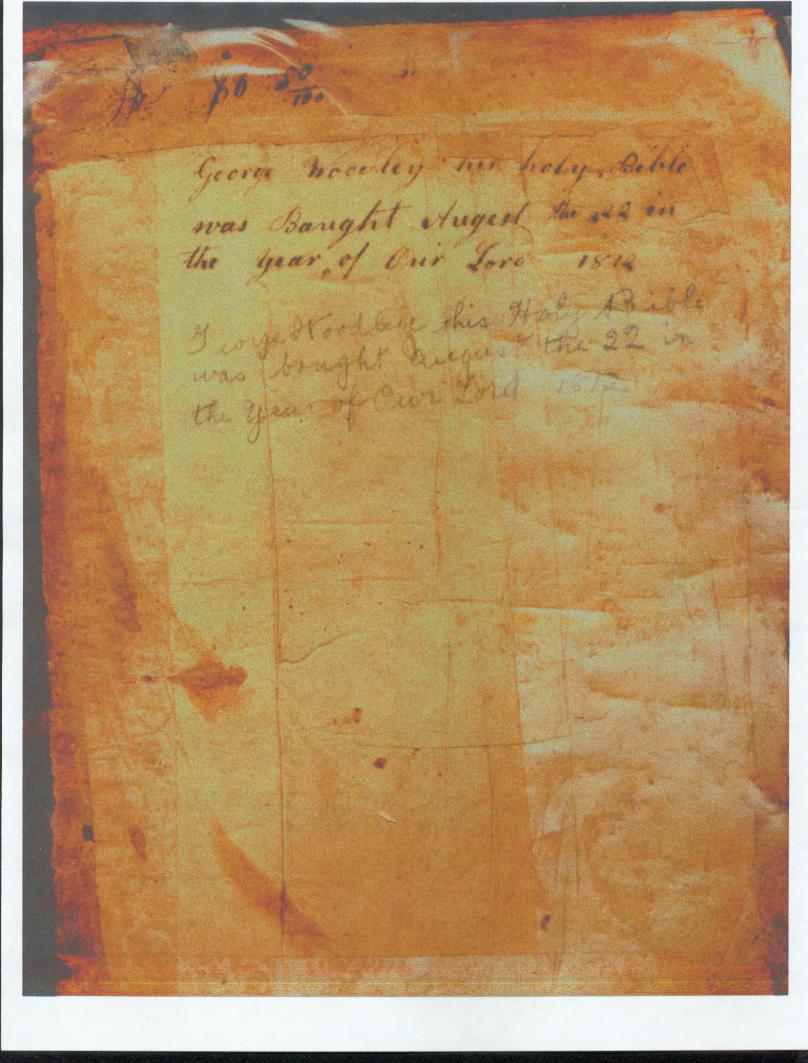 $ 10 50/100 "
George Woodley his holy Bible
was Baught Augest the 22 in
the year of Our Lord 1812
George Woodley this Holy Bible
was bought August the 22 in
the Year of Our Lord 1812